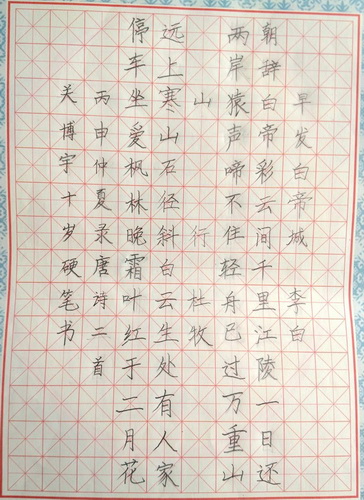 早发白帝城 李白
朝辞白帝彩云间千里江陵一日还
两岸猿声啼不住轻舟已过万重山
山行 杜牧
远上寒山石径斜白云生处有人家
停车坐爱枫林晚霜叶红于二月花
丙申仲夏录唐诗二首
关博宇十岁硬笔书